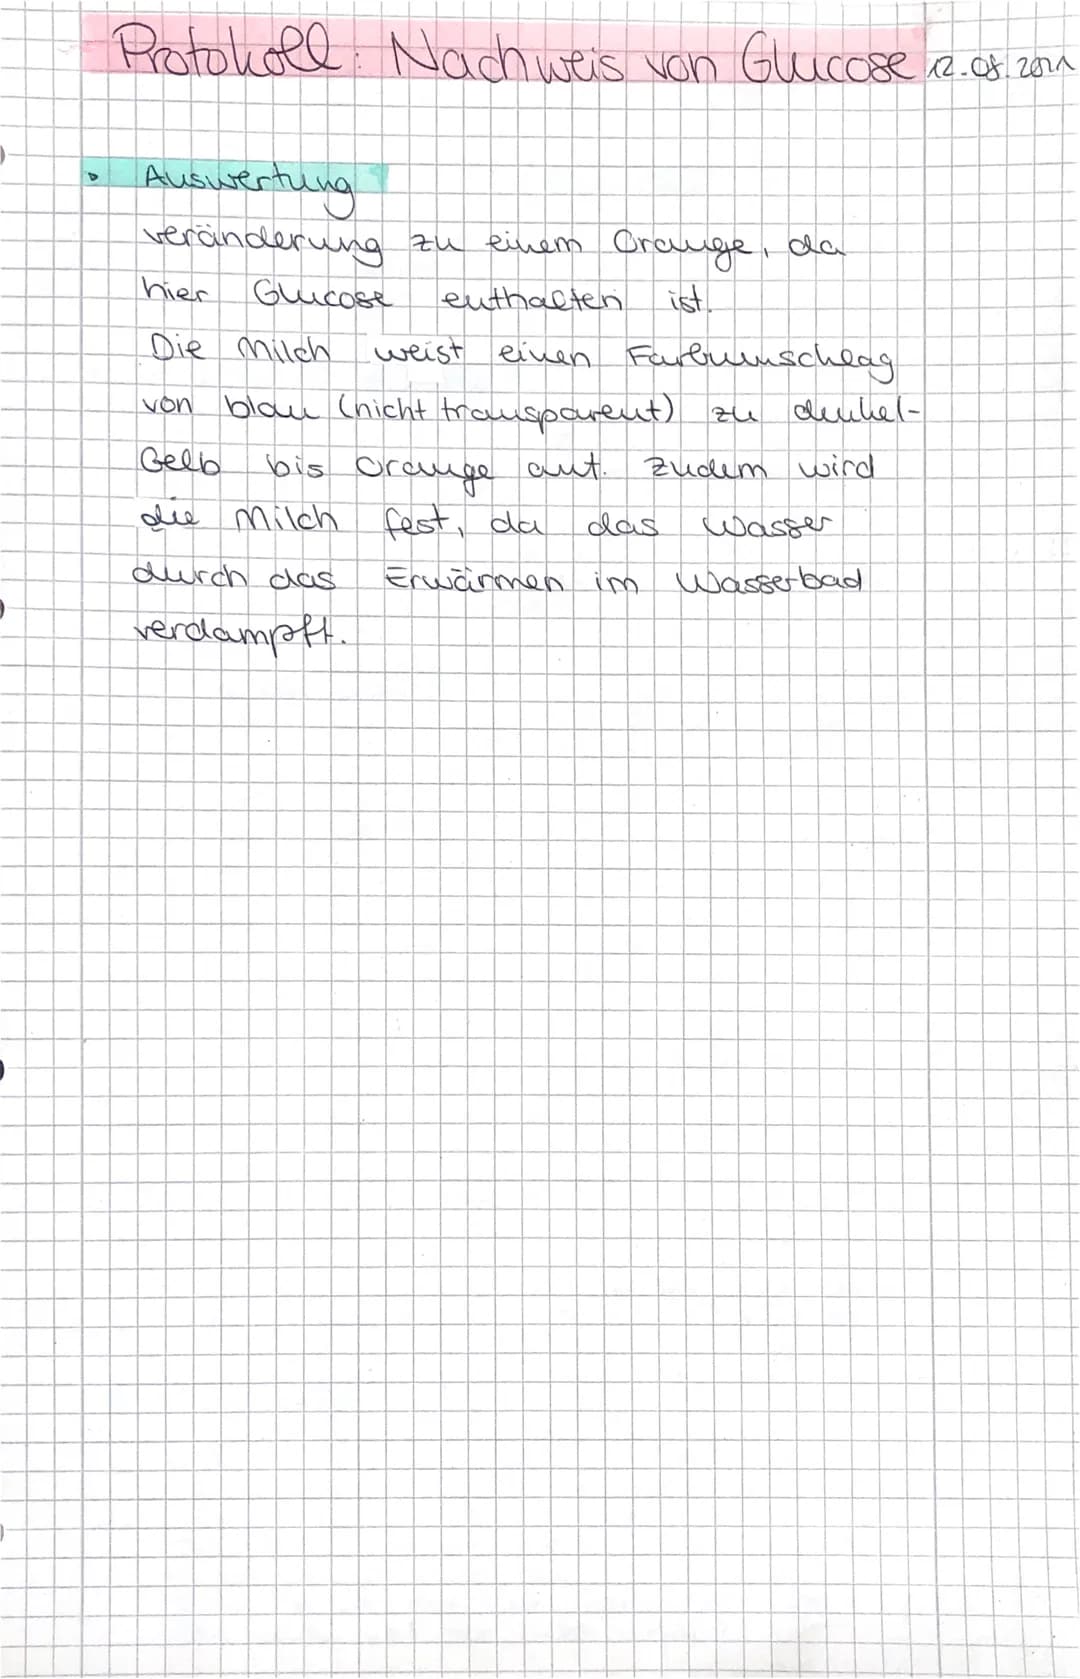 Protokoll: Nachweis von Glucose 12.08.2021
Auswertung
veränderung zu einem Orange, da
hier Glucose enthalten ist.
Die Milch weist einen Farbumschlag
von blau (nicht transparent) zu dunkel-
Gelb bis orange auf. Zudem wird
die Milch fest, da das Wasser
durch das Erwärmen im Wasserbad
verdampft.